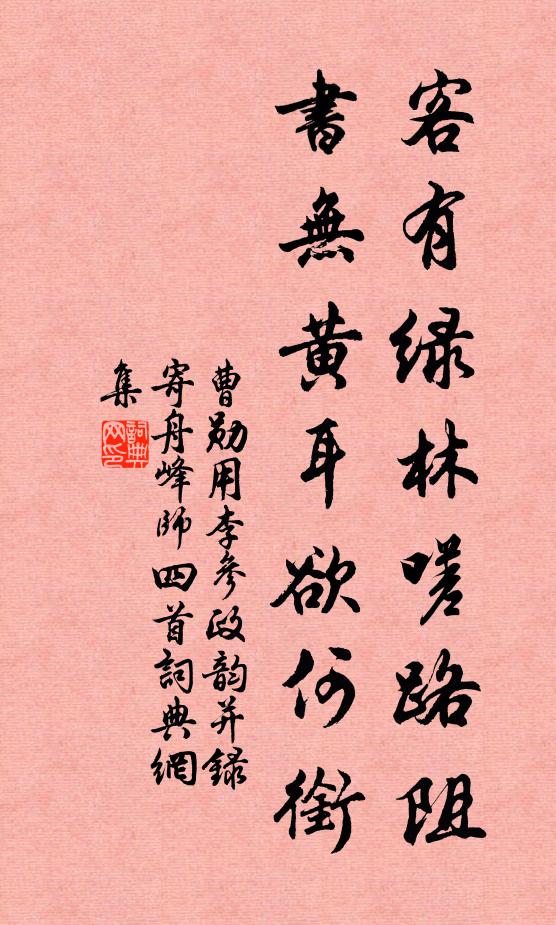 客有绿林嗟路阻
書無黄耳欲何銜
曹勛用李參政韵并錄
寄舟峰師四首詞典網
集
詞典
网印